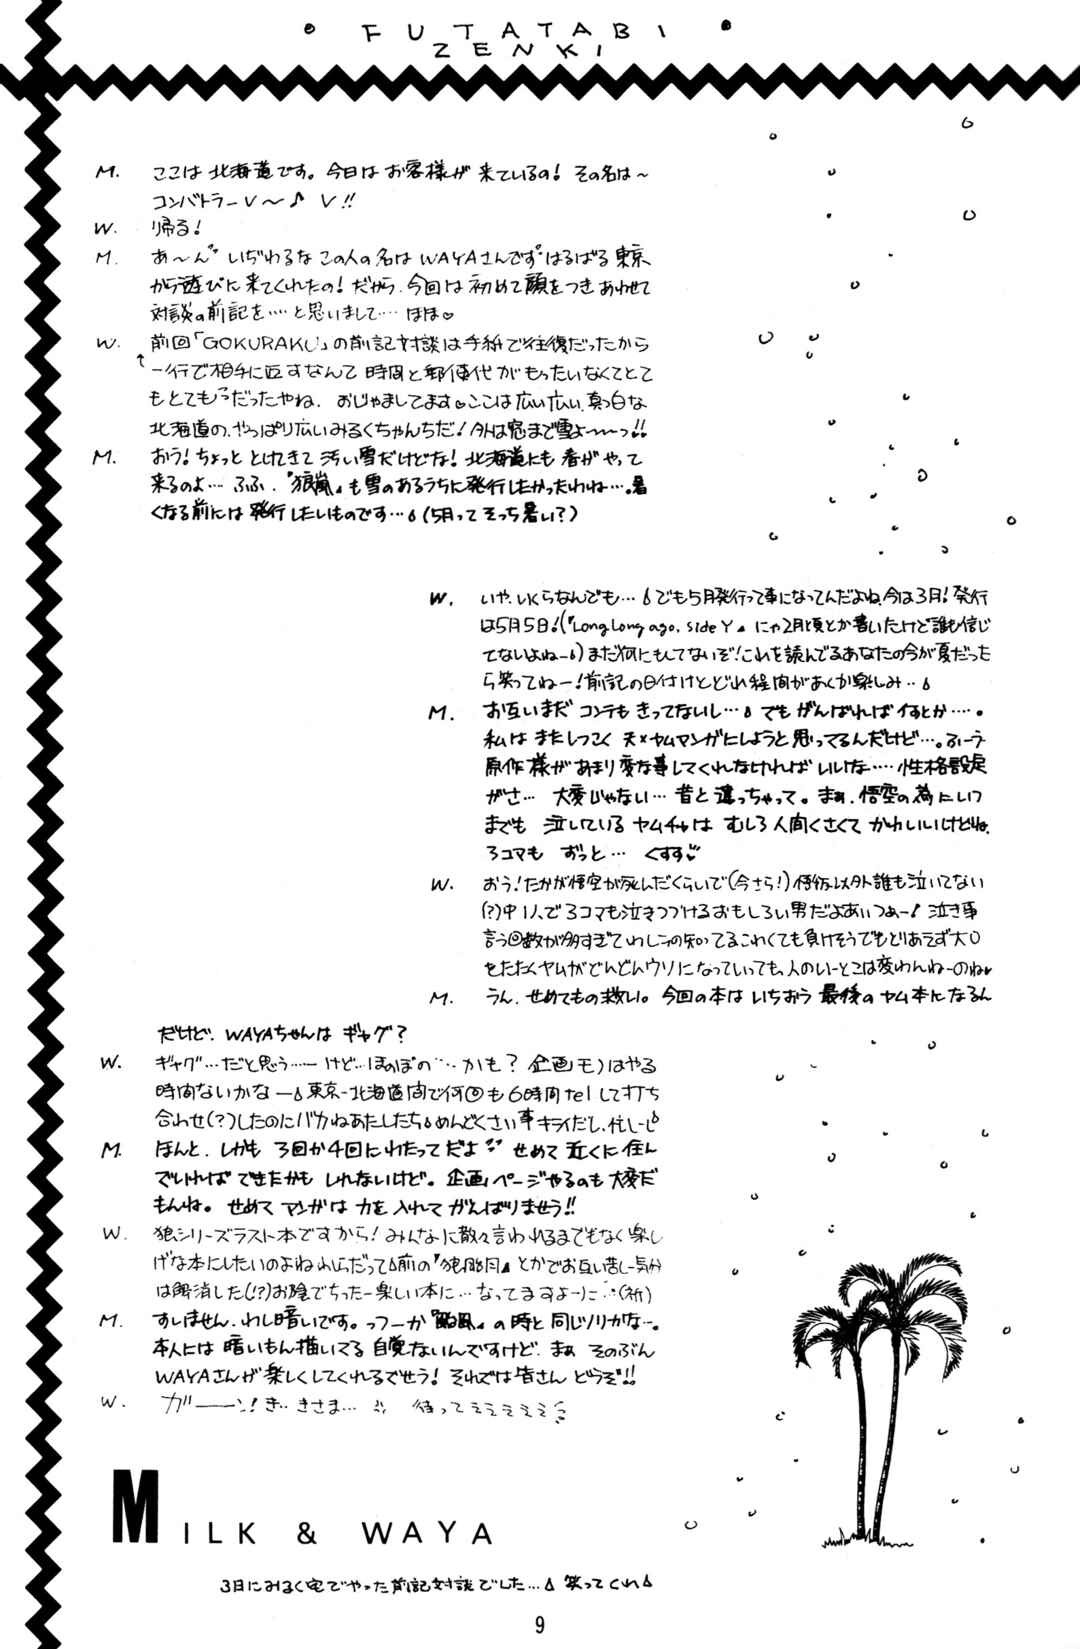 FUTATABI
ZENKI
M. ここは北海道です。今日はお客様が来ているの! その名は～
コンバトラーV～♪ V!!
W. 帰る!
M. あ～ん いぢわるな この人の名はWAYAさんです はるばる東京
から遊びに来てくれたの! だから、今回は初めて顔をつきあわせて
対談の前記を‥‥と思いまして‥‥ほほ♡
W. 前回「GOKURAKU」の前記対談は手紙で往復だったから
一行で相手に返すなんて 時間と郵便代がもったいなくてとて
もとても だったやね、おじゃましてます♡ここは広い広い、真っ白な
北海道の、やっぱり広いみるくちゃんちだ! 外は窓まで雪よ～～～っ!!
M. おう! ちょっと とけてきて 汚い雪だけどな! 北海道にも春がやって
来るのよ… ふふ、『狼嵐』も雪のあるうちに発行したかったわね…。暑
くなる前には発行したいものです… (5月って そっち暑い?)
W. いや、いくらなんでも… でも5月発行って事になってんだよね、今は3月! 発行
は5月5日! (『Long Long ago, side Y』にゃ2月頃とか書いたけど誰も信じ
てないよねー) まだ何にもしてないぞ! これを読んでるあなたの今が夏だった
ら笑ってねー! 前記の日付けとどれ程間があくか楽しみ‥
M. お互いまだ コンテもきってないし… でも がんばれば何とか‥‥。
私は またしつこく 天×ヤムマンガにしようと思ってるんだけど…。ふーう
原作様があまり変な事してくれなければいいけな‥‥性格設定
がさ… 大変じゃない… 昔と違っちゃって。まぁ、悟空の為にいつ
までも 泣いている ヤムチャは むしろ人間くさくて かわいいけどね、
3コマも ずっと… くすす♡
W. おう! たかが悟空が死んだくらいで(今さら!)悟飯以外誰も泣いてない
(?)中1人で3コマも泣きつづけるおもしろい男だよあいつぁー! 泣き事
言う回数が多すぎて
をたたくヤムがどんどんウソになっていっても、人のいーとこは変わんねーのね♡
M. うん、せめてもの救い。今回の本は いちおう 最後のヤム本になるん
だけど、WAYAちゃんは ギャグ?
W. ギャグ…だと思う……けど…ほのぼの… かも? 企画モノはやる
時間ないかな— 東京-北海道間で何回も6時間telして打ち
合わせ(?)したのにバカねあたしたち めんどくさい事キライだし、忙しーし
M. ほんと、しかも 3回か4回にわたってだよ せめて 近くに住ん
でいれば できたかも しれないけど。企画ページやるのも大変だ
もんね。せめて マンガは 力を入れて がんばりませう!!
W. 狼シリーズラスト本ですから! みんなに散々言われるまでもなく楽し
げな本にしたいのよねわしらだって 前の『狼月』とかでお互い苦しー気分
は解消した(!?)お陰でちったー楽しい本に…なってますよーに∴(祈)
M. すいません、わし暗いです。っつーか『』の時と同じノリかな～。
本人には 暗いもん描いてる 自覚ないんですけど、まぁ そのぶん
WAYAさんが楽しくしてくれるでせう! それでは皆さん どうぞ!!
W. ガーーン! き‥きさま… 待ってぇぇぇぇぇ
MILK & WAYA
3日にみるく宅でやった前記対談でした… 笑ってくれ
9